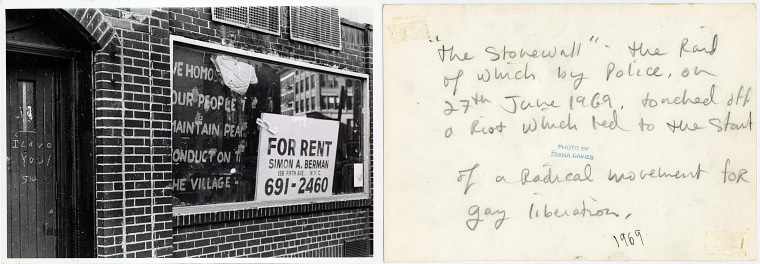 I Love
You!
WE HOMO
OUR PEOPLE T
MAINTAIN PEA
CONDUCT ON T
HE VILLAGE
FOR RENT
SIMON A. BERMAN
156 FIFTH AVE. N.Y.C.
691-2460
"The Stonewall" - the Raid
of which by Police, on
27th June 1969, touched off
a Riot which led to the Start
PHOTO BY
DIANA DAVIES
of a Radical movement for
gay liberation.
1969